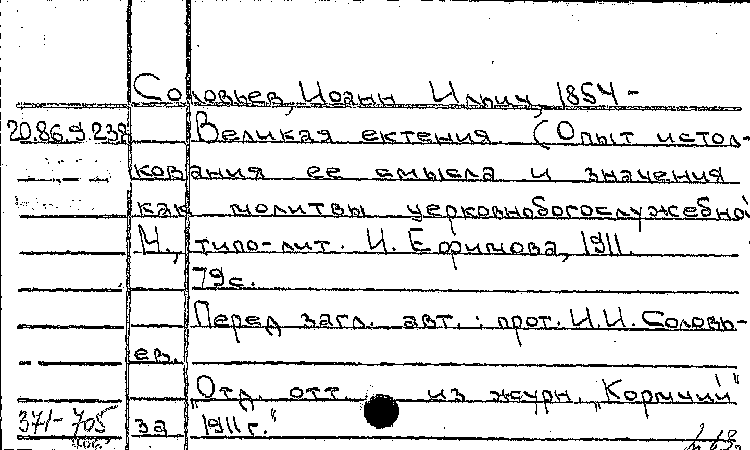 Соловьев, Иоанн Ильич, 1854-
20.86.9.238 Великая ектения. (Опыт истол-
кования ее смысла и значения
как молитвы церковнобогослужебной
М., типо-лит. И. Ефимова, 1911.
79с.
Перед загл. авт.: прот. И.И. Соловь-
ев.
"Отд. отт. из журн. "Кормчий"
371-705 за 1911г."